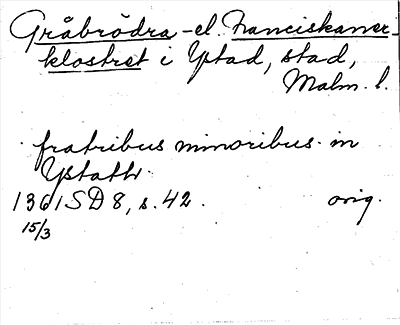 Gråbrödra- el. Franciskaner-
klostret i Ystad, stad,
Malm. l.
fratribus minoribus in
Ystath
1361 SD 8, s. 42. orig.
15/3